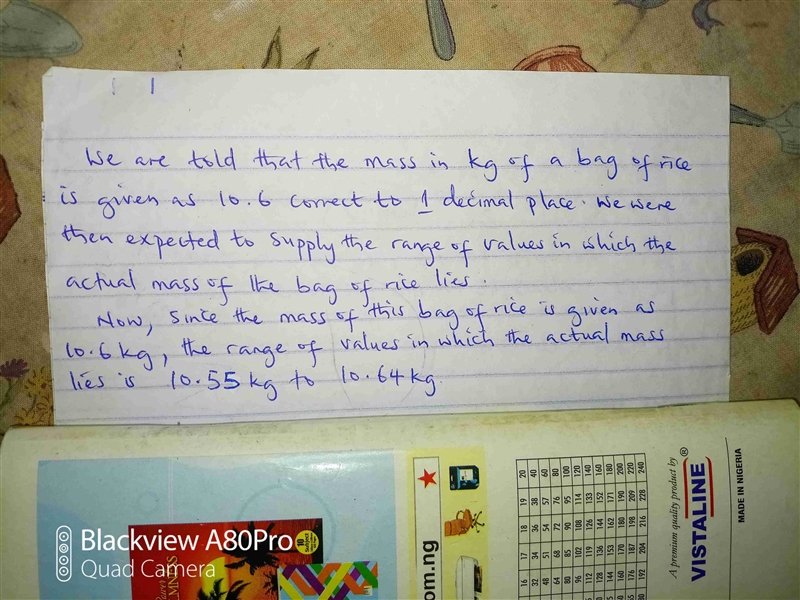 We are told that the mass in kg of a bag of rice
is given as 10.6 correct to 1 decimal place. We were
then expected to supply the range of values in which the
actual mass of the bag of rice lies.
Now, since the mass of this bag of rice is given as
10.6 kg, the range of values in which the actual mass
lies is 10.55 kg to 10.64 kg.
om.ng
20 40 60 80 100 120 140 160 180 200 220 240
19 38 57 76 95 114 133 152 171 190 209 228
18 36 54 72 90 108 126 144 162 180 198 216
17 34 51 68 85 102 119 136 153 170 187 204
16 32 48 64 80 96 112 128 144 160 176 192
A premium quality product by
VISTALINE®
MADE IN NIGERIA
Blackview A80Pro
Quad Camera